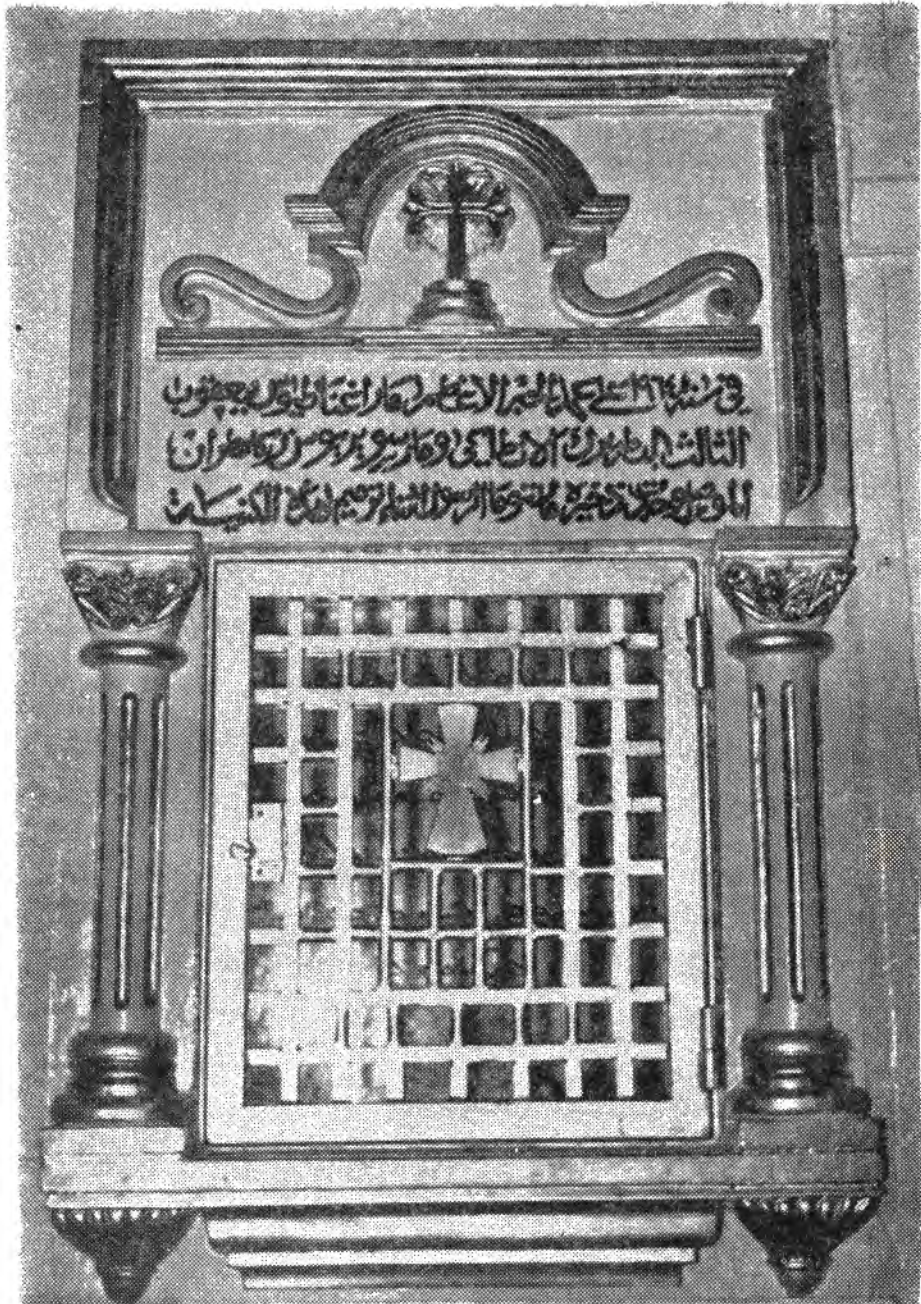 في سنة ١٩٦٤ على عهد الحبر الاعظم مار اغناطيوس يعقوب
الثالث البطريرك الانطاكي ومار سويريوس زكا مطران
الموصل وجدت ذخيرة مار توما الرسول اثناء ترميم هذه الكنيسة